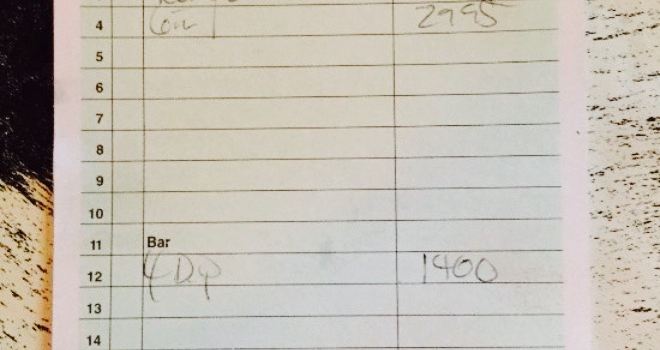 4 2995
5
6
7
8
9
10
11 Bar
12 4 Dp 1400
13
14